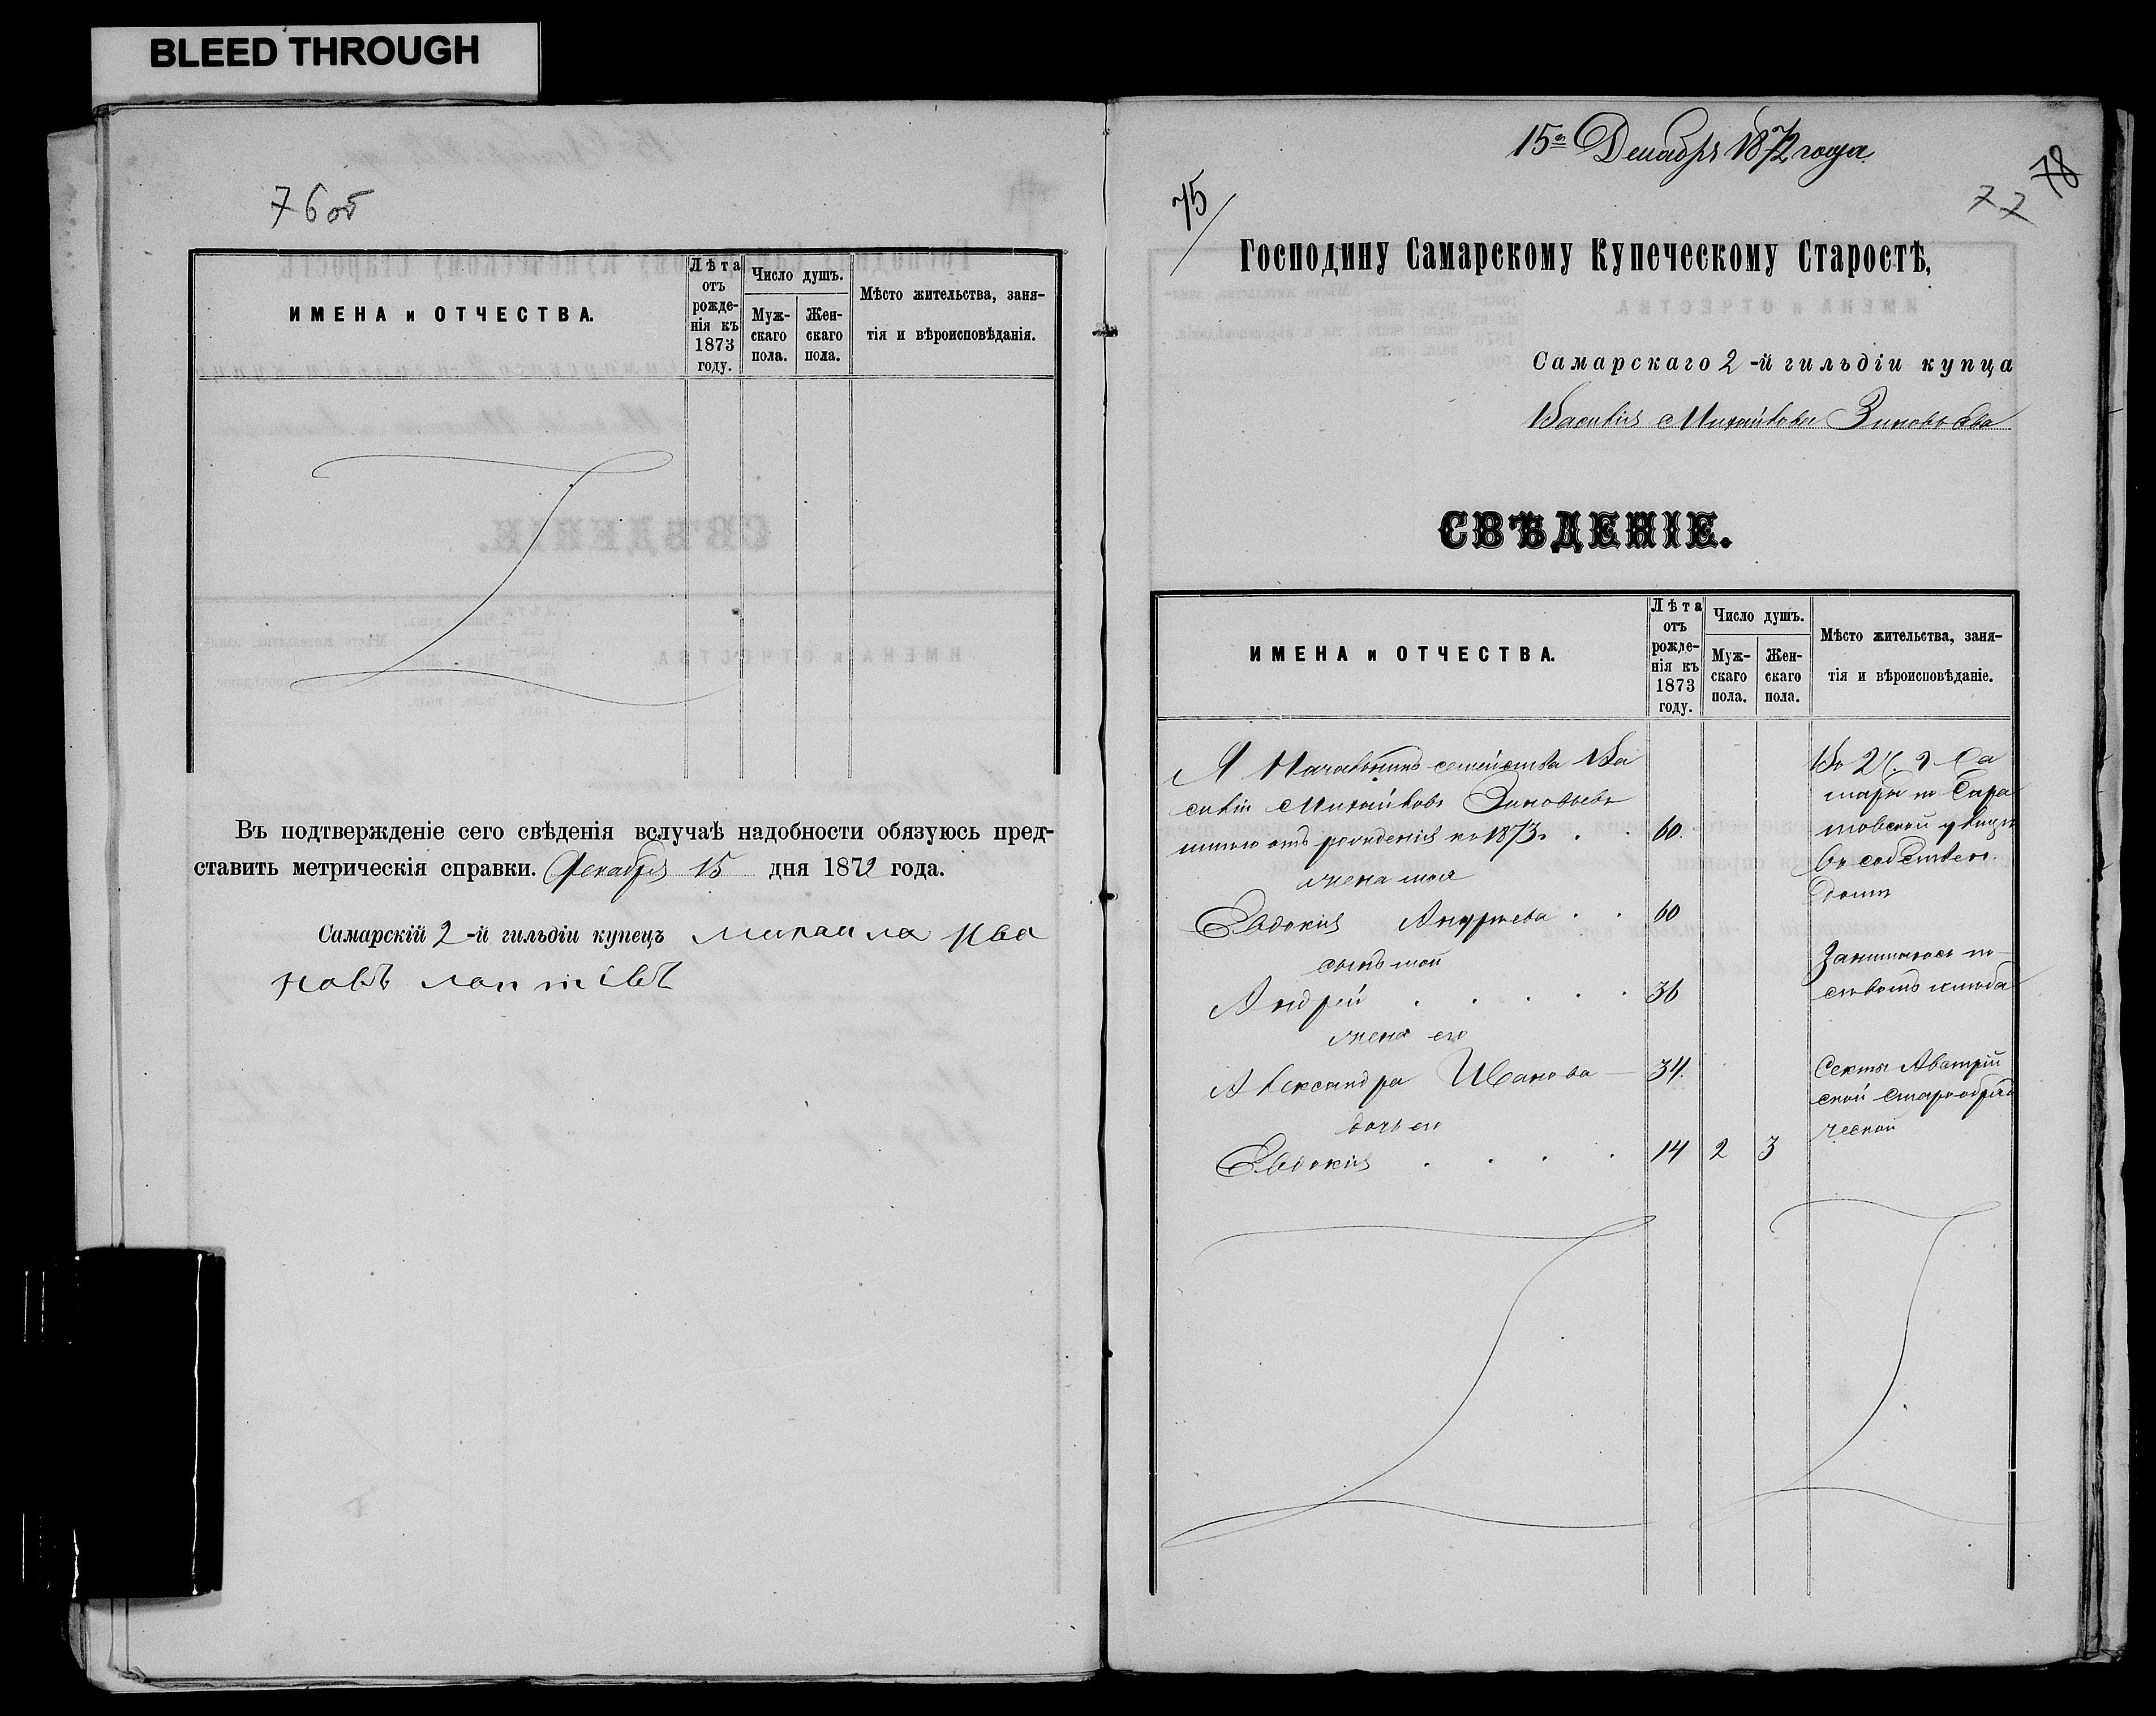 BLEED THROUGH
76 об
ИМЕНА и ОТЧЕСТВА.
Лѣта отъ рожденія къ 1873 году.
Число душъ.
Мужскаго пола.
Женскаго пола.
Мѣсто жительства, заня-
тія и вѣроисповѣданія.
Въ подтвержденіе сего свѣденія вслучаѣ надобности обязуюсь пред-
ставить метрическія справки. Декабря 15 дня 1872 года.
Самарскій 2-й гильдіи купецъ михаила Ива
новъ лаптевъ
15го Декабря 1872 года
75
77
78
Господину Самарскому Купеческому Старостѣ,
Самарскаго 2-й гильдіи купца
Василія Михайлова Зиновьева
СВѢДЕНІЕ.
ИМЕНА и ОТЧЕСТВА.
Лѣта отъ рожденія къ 1873 году.
Число душъ.
Мужскаго пола.
Женскаго пола.
Мѣсто жительства, заня-
тія и вѣроисповѣданіе.
Я Начальникъ семейства Ва
силій Михайловъ Зиновьевъ
отъ рожденія къ 1873 г. 60.
жена моя
Евдокия Андреева 60
сынъ мой
Андрей 36
жена его
Александра Иванова 34.
дочь его
Евдокия 14 2 3
Во 2 ч. г. Са
мары по Сара
товской улицѣ
въ собствен.
домѣ
Занимаюсь по-
сѣвомъ хлѣба
Секты Австрій
ской старообряд
ческой